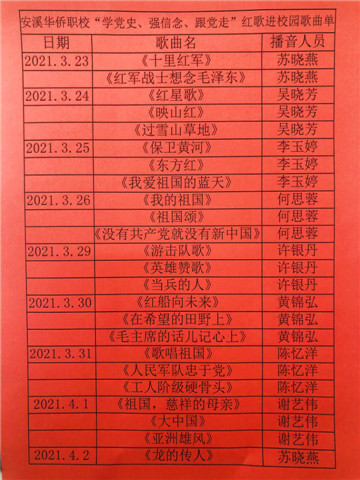 安溪华侨职校“学党史、强信念、跟党走”红歌进校园歌曲单
日期 歌曲名 播音人员
2021.3.23 《十里红军》 苏晓燕
《红军战士想念毛泽东》 苏晓燕
2021.3.24 《红星歌》 吴晓芳
《映山红》 吴晓芳
《过雪山草地》 吴晓芳
2021.3.25 《保卫黄河》 李玉婷
《东方红》 李玉婷
《我爱祖国的蓝天》 李玉婷
2021.3.26 《我的祖国》 何思蓉
《祖国颂》 何思蓉
《没有共产党就没有新中国》 何思蓉
2021.3.29 《游击队歌》 许银丹
《英雄赞歌》 许银丹
《当兵的人》 许银丹
2021.3.30 《红船向未来》 黄锦弘
《在希望的田野上》 黄锦弘
《毛主席的话儿记心上》 黄锦弘
2021.3.31 《歌唱祖国》 陈忆洋
《人民军队忠于党》 陈忆洋
《工人阶级硬骨头》 陈忆洋
2021.4.1 《祖国，慈祥的母亲》 谢艺伟
《大中国》 谢艺伟
《亚洲雄风》 谢艺伟
2021.4.2 《龙的传人》 苏晓燕